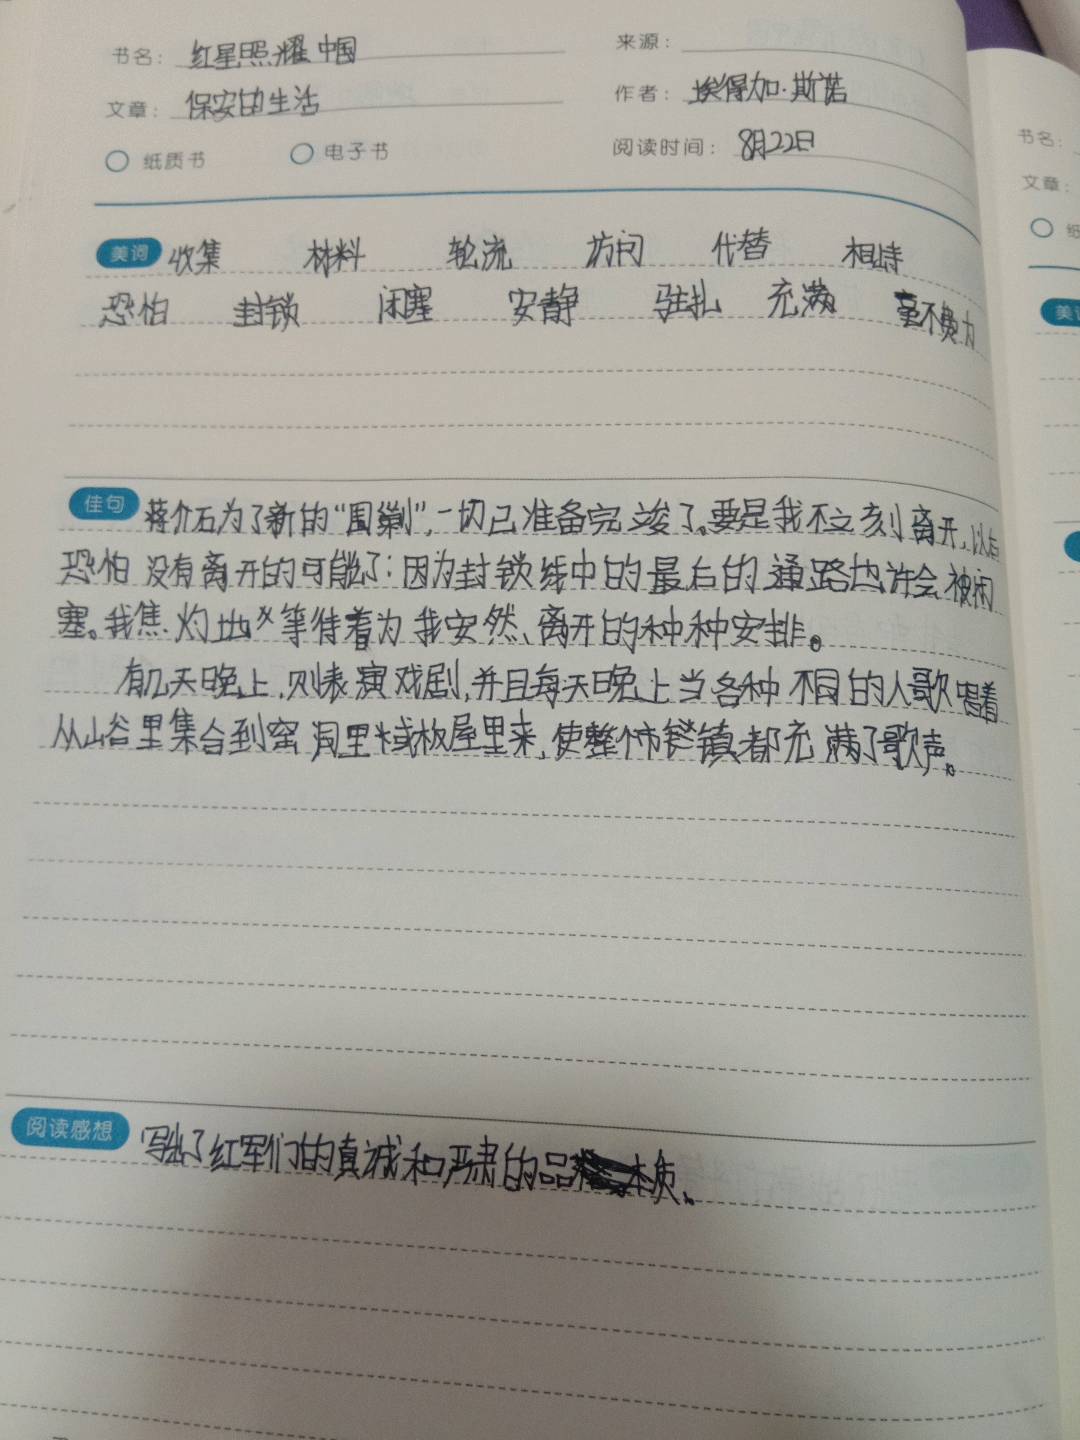 书名：红星照耀中国 来源：
文章：保安的生活 作者：埃得加·斯诺
纸质书 电子书 阅读时间：8月22日
美词 收集 材料 轮流 访问 代替 相持
恐怕 封锁 闭塞 安静 驻扎 充满 毫不费力
佳句 蒋介石为了新的“围剿”，一切已准备完竣了。要是我不立刻离开，以后
恐怕没有离开的可能了：因为封锁线中的最后的通路也许会被闭
塞。我焦灼地等待着为我安然离开的种种安排。
有几天晚上，则表演戏剧，并且每天晚上当各种不同的人歌唱着
从山谷里集合到窑洞里或板屋里来，使整个市镇都充满了歌声。
阅读感想 写出了红军们的真诚和严肃的品本质。
书名：
文章：
纸
美词